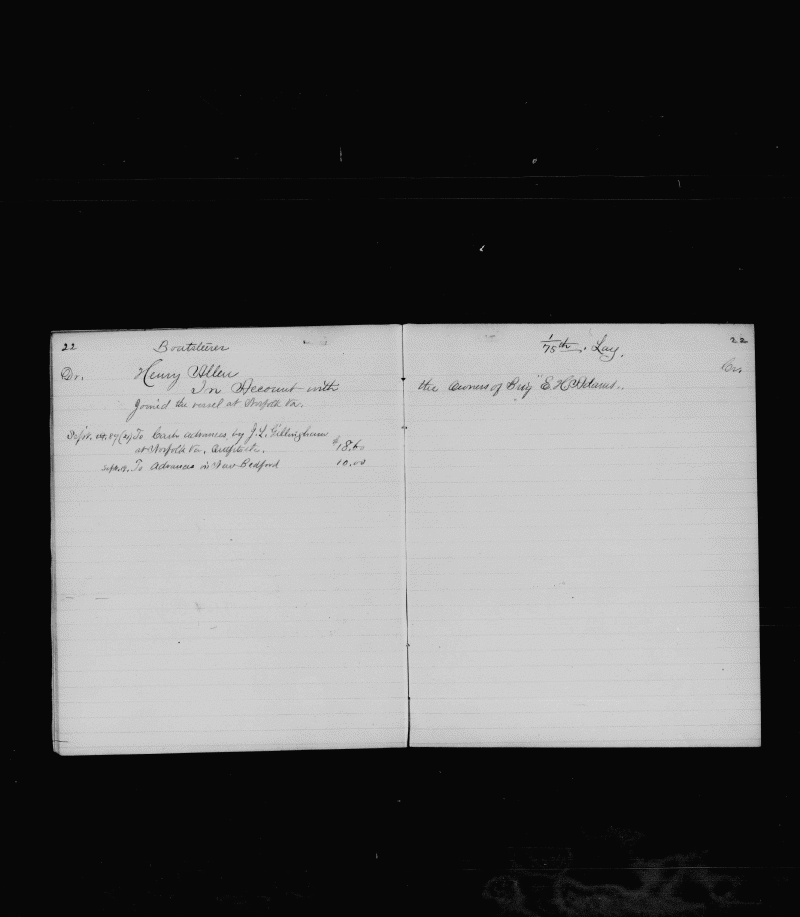 22 Boatsteerer
Dr. Henry Allen
In Account with
Joined the vessel at Norfolk Va.
To Cash advances by J. L. Gillingham
at Norfolk Va. $18.60
To Advances in New Bedford 10.00
1/75th. Lay. 22
Cr.
the Owners of Brig "E. H. Adams..